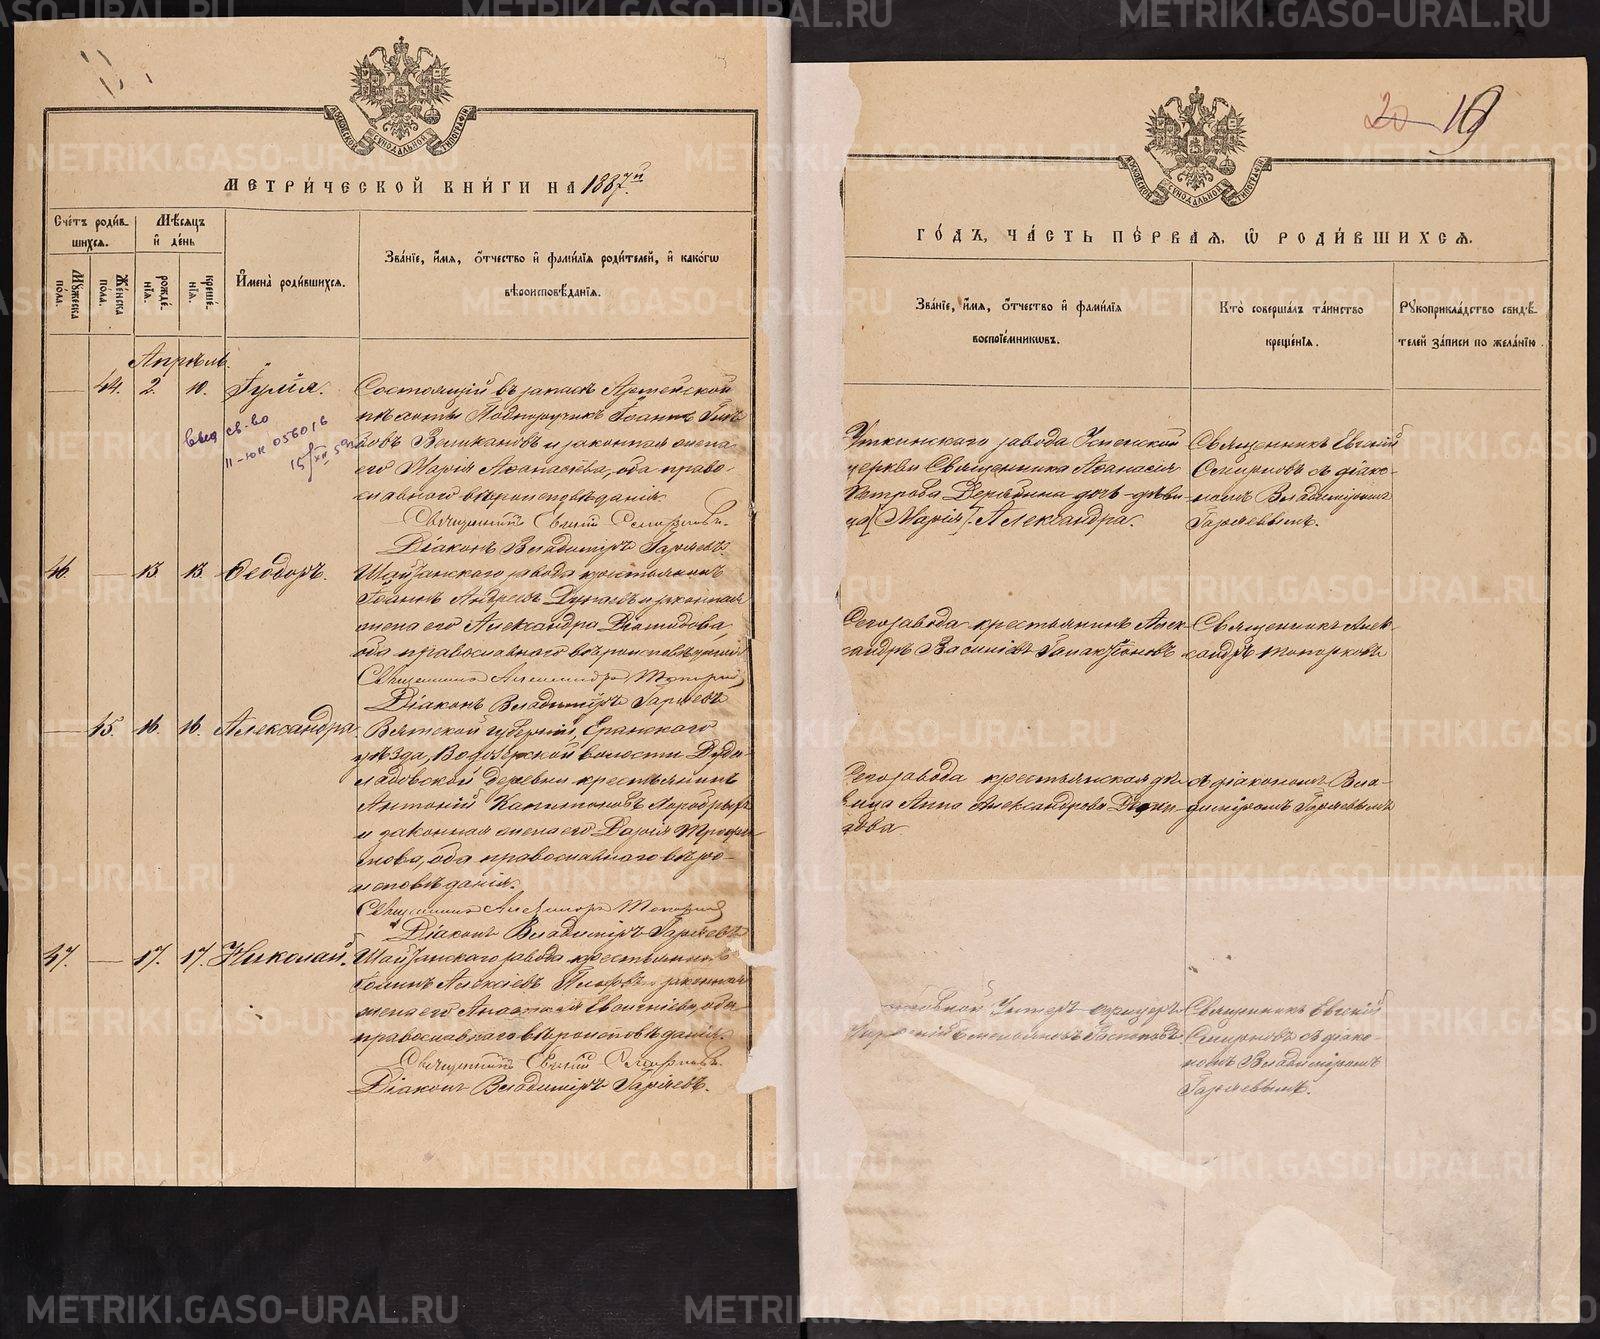 МОСКОВСКОЙ СѴНОДАЛЬНОЙ ТИПОГРАФІИ
МЕТРИ́ЧЕСКОЙ КНИ́ГИ НА 1887й
Сче́тъ роди́в-
шихся.
Мѣ́сяцъ
и҆ де́нь
Му́жеска
пола.
Же́нска
пола.
рожде́-
нїя.
креще́-
нїя.
И҆мена̀ роди́вшихся.
Зва́нїе, и҆́мя, ѻ҆́тчество и҆ фамѝлїя роди́телей, и҆ како́гѡ
вѣроисповѣ́данїя.
Апрѣль.
— 44. 2. 10. Іулія. Состоящій въ запасѣ Армейской
пѣхоты Подпоручикъ Іоаннъ
Великановъ и законная жена
его Марія Аѳанасіева, оба право-
славнаго вѣроисповѣданія.
выд св-во
II-ЮК 056016
Священникъ Евгеній Смирновъ.
Діаконъ Владиміръ Гаряевъ.
46. — 13. 13. Ѳеодоръ. Шайтанскаго завода крестьянинъ
Іоаннъ Андреевъ и законная
жена его Александра Діомидова,
оба православнаго вѣроисповѣданія.
Священникъ Александръ Топорковъ
Діаконъ Владиміръ Гаряевъ
— 45. 16. 16. Александра Вятской губерніи, Яранскаго
уѣзда, волости
деревни крестьянинъ
Антоній Капитоновъ
и законная жена его Дарія Трофи-
мова, оба православнаго вѣро-
исповѣданія.
Священникъ Александръ Топорковъ
Діаконъ Владиміръ Гаряевъ
47. — 17. 17. Николай. Шайтанскаго завода крестьянинъ
Алексіевъ и законная
жена его Анастасія Евгеніева, оба
православнаго вѣроисповѣданія.
Священникъ Евгеній Смирновъ.
Діаконъ Владиміръ Гаряевъ.
20 19
МОСКОВСКОЙ СѴНОДАЛЬНОЙ ТИПОГРАФІИ
ГО́ДЪ, ЧА́СТЬ ПЕ́РВАЯ, Ѡ҆ РОДИ́ВШИХСЯ.
Зва́нїе, и҆́мя, ѻ҆́тчество и҆ фамѝлїя
воспрїе́мниковъ.
Кто̀ соверша́лъ та́инство
креще́нїя.
Рукоприкла́дство свидѣ́-
телей за́писи по жела́нїю.
Уткинскаго завода Успенской
церкви Священника Аѳанасія
Петрова Дерябина дочь дѣви-
ца [Марія] Александра.
Священникъ Евгеній
Смирновъ съ діако-
номъ Владиміромъ
Гаряевымъ.
Сего завода крестьянинъ Алек-
сандръ Василіевъ
Священникъ Алек-
сандръ Топорковъ
Сего завода крестьянская дѣ-
вица Анна Александрова
съ діакономъ Вла-
диміромъ Гаряевымъ
Унтеръ-офицеръ
Священникъ Евгеній
Смирновъ съ діако-
номъ Владиміромъ
Гаряевымъ.
METRIKI.GASO-URAL.RU